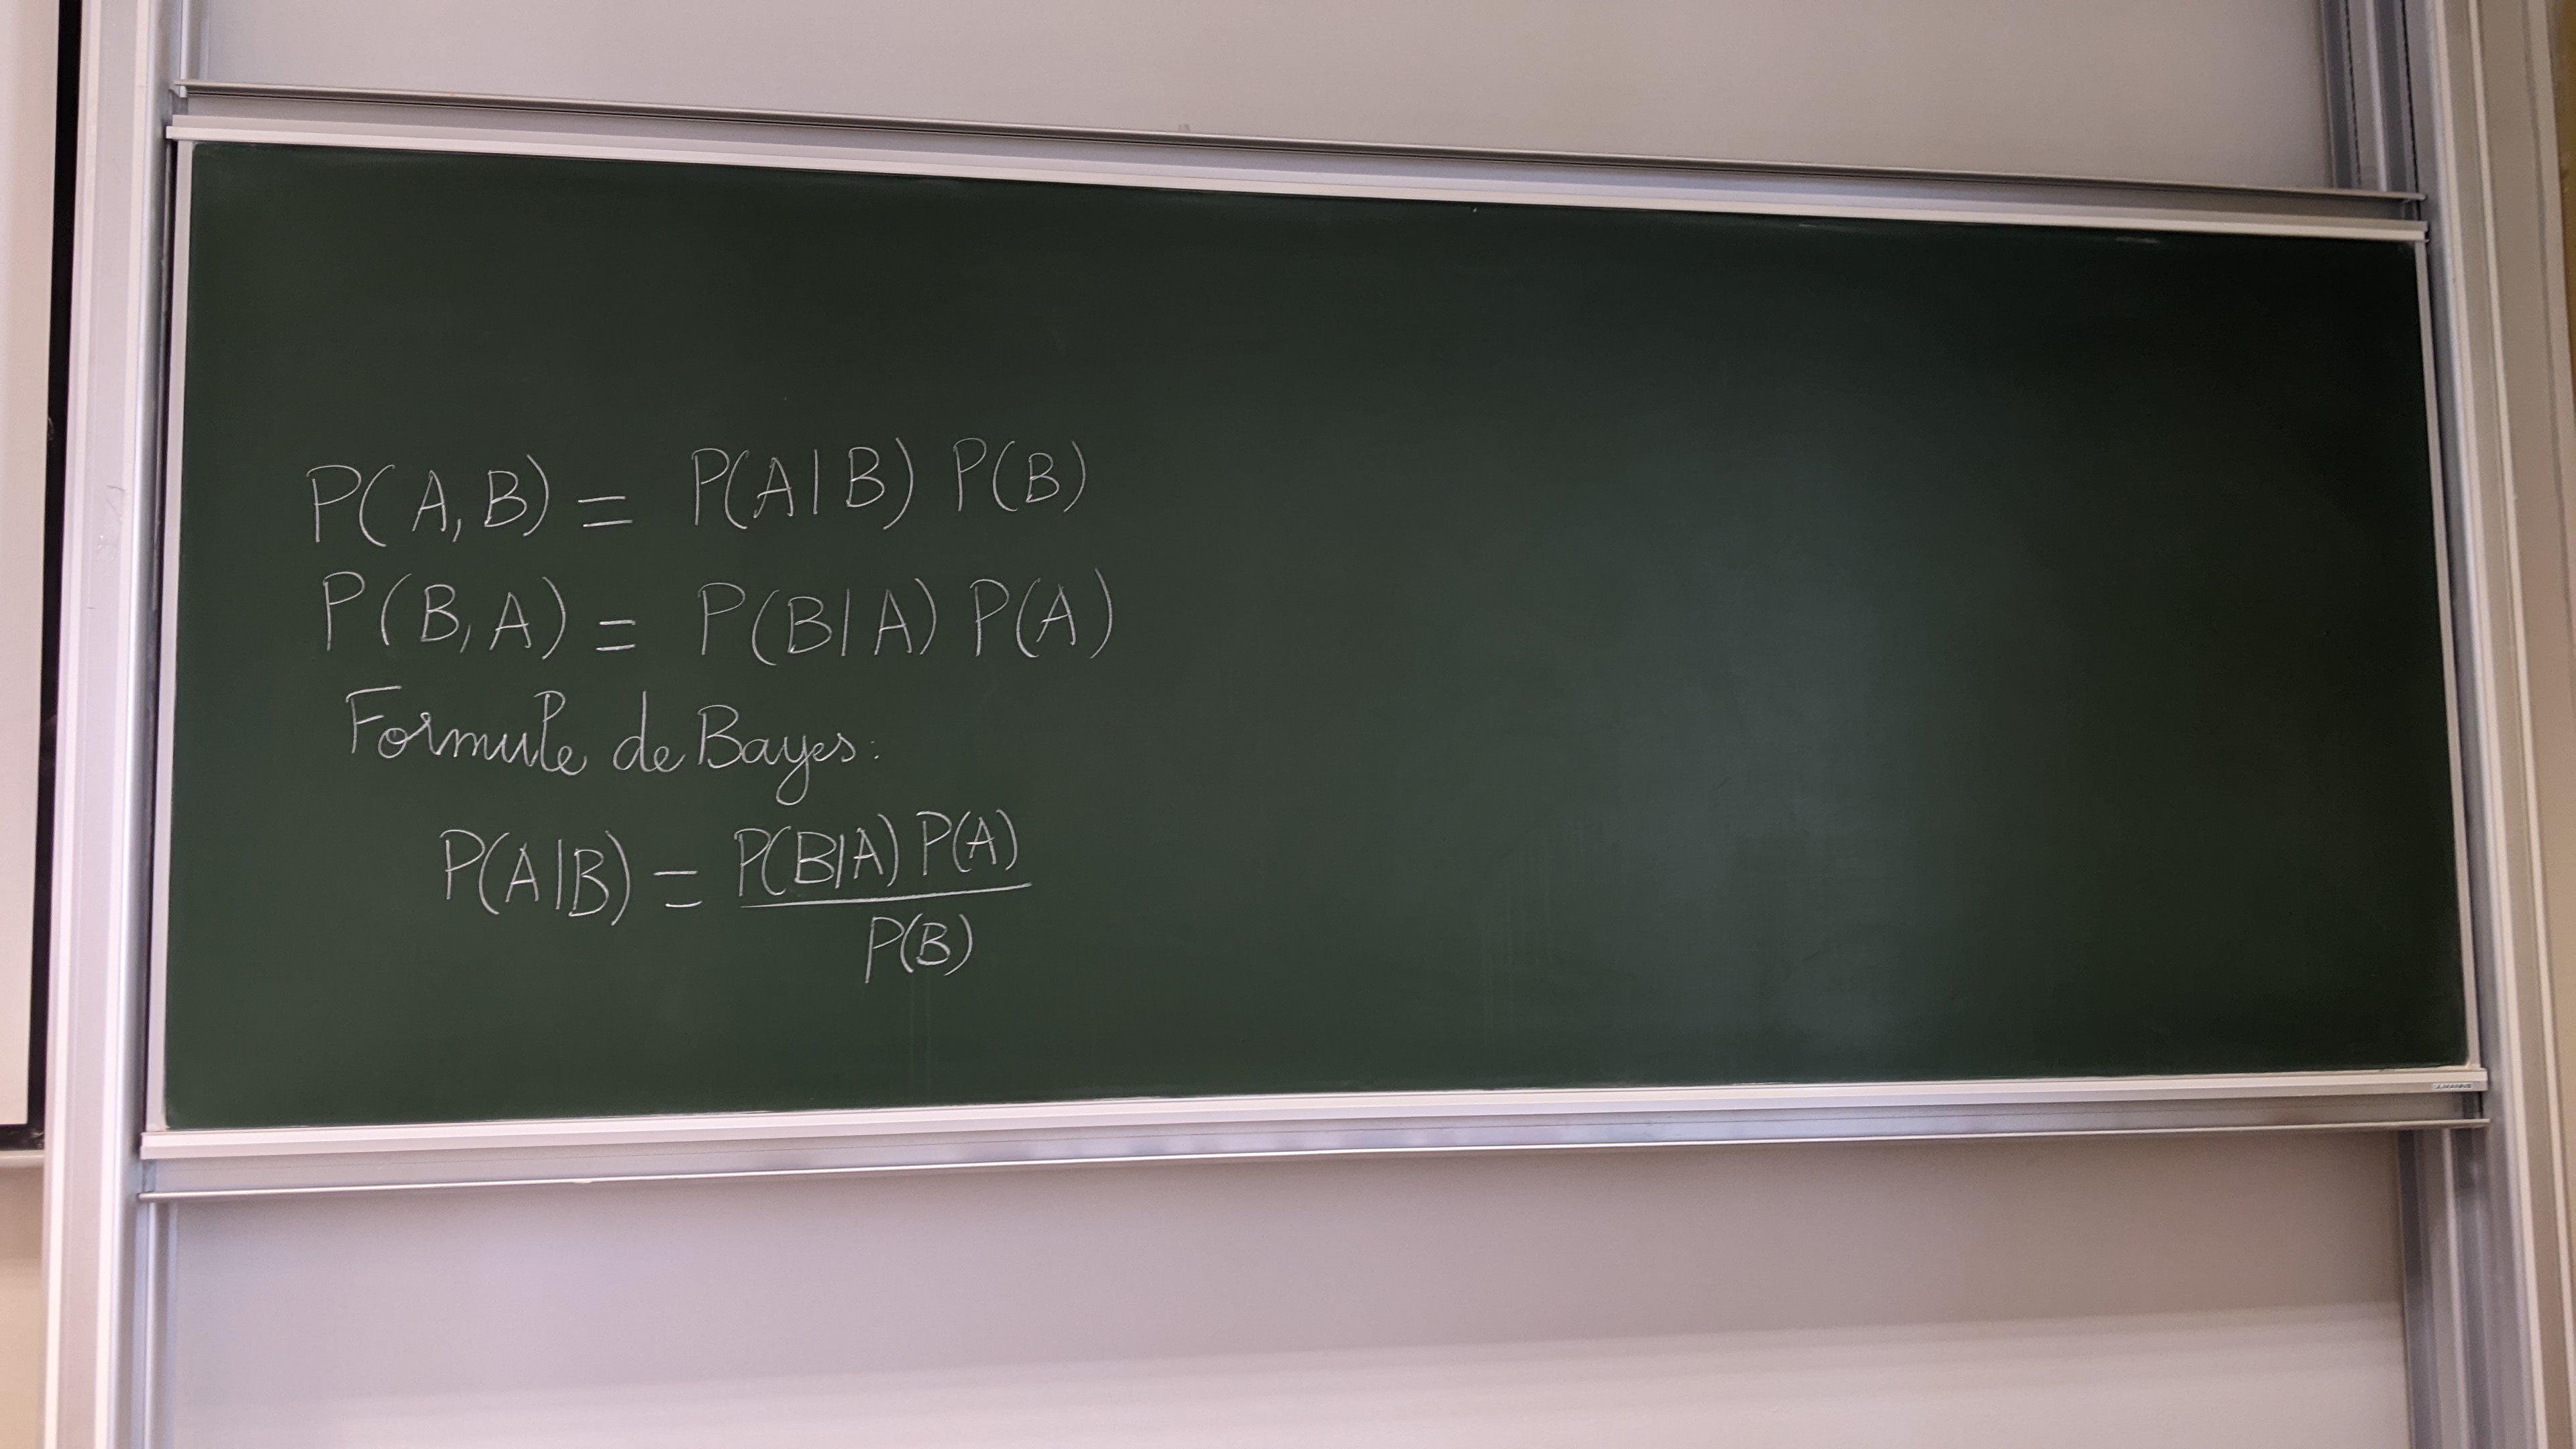 P(A,B) = P(A|B) P(B)
P(B,A) = P(B|A) P(A)
Formule de Bayes:
P(A|B) = P(B|A) P(A)
P(B)